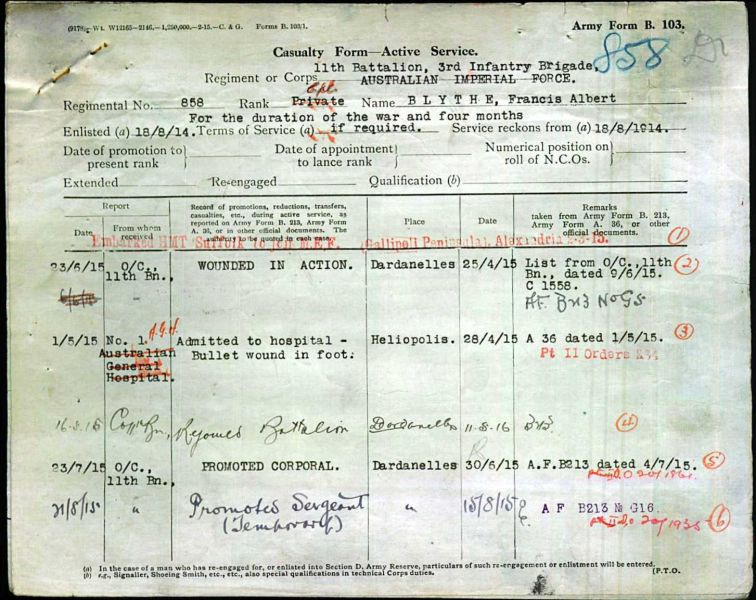 (9178) Wt. W12165—2146.—1,250,000.—2-15.—C. & G. Forms B. 103/1.
Army Form B. 103.
858
Casualty Form—Active Service.
11th Battalion, 3rd Infantry Brigade,
Regiment or Corps AUSTRALIAN IMPERIAL FORCE.
Cpl.
Regimental No. 858 Rank Private Name BLYTHE, Francis Albert
For the duration of the war and four months
Enlisted (a) 18/8/14. Terms of Service (a) if required. Service reckons from (a) 18/8/1914.
Date of promotion to present rank
Date of appointment to lance rank
Numerical position on roll of N.C.Os.
Extended Re-engaged Qualification (b)
Report
Date
From whom received
Record of promotions, reductions, transfers, casualties, etc., during active service, as reported on Army Form B. 213, Army Form A. 36, or in other official documents. The authority to be quoted in each case.
Place
Date
Remarks
taken from Army Form B. 213, Army Form A. 36, or other official documents.
Embarked HMT Suffolk to join M.E.F. Gallipoli Peninsula, Alexandria 2-3-15. 1
23/6/15 O/C., 11th Bn., WOUNDED IN ACTION. Dardanelles 25/4/15 List from O/C., 11th Bn., dated 9/6/15. C 1558. 2
A.F. B213 No G5
1/5/15 No. 1. A.G.H. Australian General Hospital. Admitted to hospital - Bullet wound in foot. Heliopolis. 28/4/15 A 36 dated 1/5/15. 3
Pt II Orders
Rejoined Battalion Dardanelles 4
23/7/15 O/C., 11th Bn., PROMOTED CORPORAL. Dardanelles 30/6/15 A.F.B213 dated 4/7/15. 5
21/8/15 " Promoted Sergeant (Temporary) " 15/8/15 A F B213 No G16. 6
(a) In the case of a man who has re-engaged for, or enlisted into Section D, Army Reserve, particulars of such re-engagement or enlistment will be entered.
(b) e.g., Signaller, Shoeing Smith, etc., etc., also special qualifications in technical Corps duties.
(P.T.O.